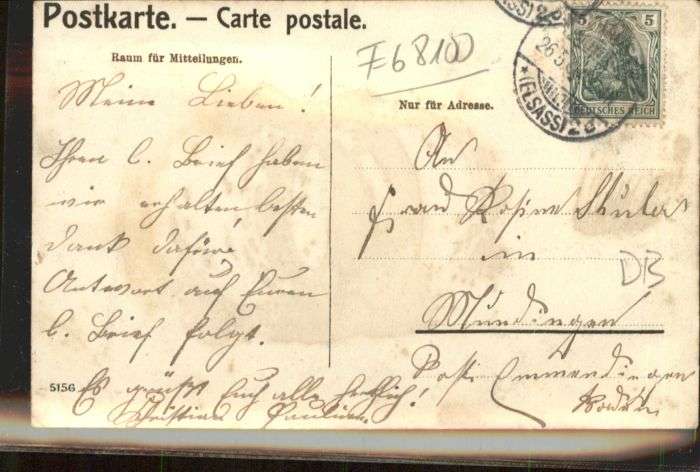 Postkarte. — Carte postale.
Raum für Mitteilungen.
F68100
Nur für Adresse.
5
5
DEUTSCHES REICH
26.5
*(ELSASS)
Meine Lieben!
Ihren l. Brief haben
wir erhalten besten
Dank dafür
Antwort auf Euren
l. Brief folgt.
Es grüßt Euch alle herzlich!
An
Frau Rosine
in
Mundingen
Post Emmendingen
Baden
DB
5156